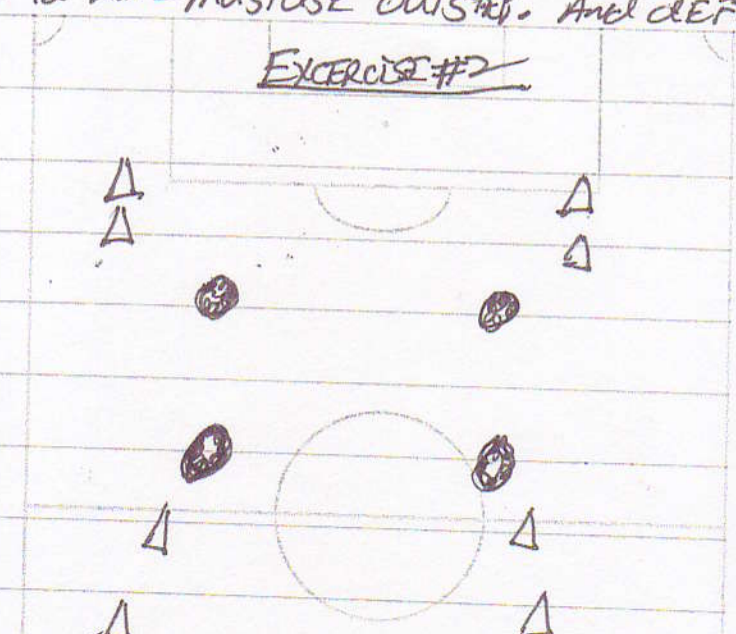 must use outside. And def
EXCERCISE #2